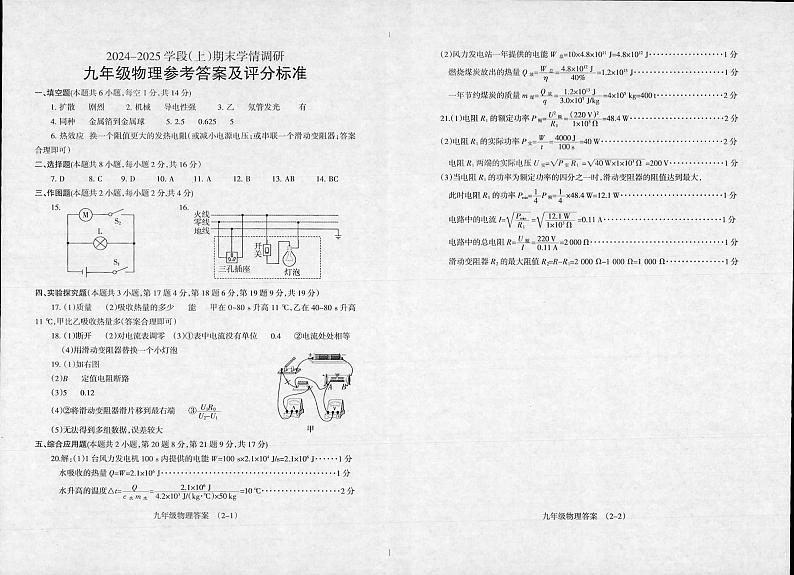 2024-2025学段(上)期末学情调研
九年级物理参考答案及评分标准
一、填空题(本题共6小题,每空1分,共14分)
1. 扩散 剧烈 2. 机械 导电性强 3. 乙 氖管发光 有
4. 同种 金属箔到金属球 5. 2.5 0.625 5
6. 热效应 换一个阻值更大的发热电阻(或减小电源电压;或串联一个滑动变阻器;答案
合理即可)
二、选择题(本题共8小题,每小题2分,共16分)
7. D 8. C 9. D 10. A 11. A 12. B 13. AB 14. BC
三、作图题(本题共2小题,每小题2分,共4分)
15. 16.
M S₂
L
S₁
火线
零线
地线
开关
三孔插座 灯泡
四、实验探究题(本题共3小题,第17题4分,第18题6分,第19题9分,共19分)
17. (1)质量 (2)吸收热量的多少 能 甲在0~80 s升高11 ℃,乙在40~80 s升高
11 ℃,甲比乙吸收热量多(答案合理即可)
18. (1)断开 (2)对电流表调零 (3)①表中电流没有单位 0.4 ②电流处处相等
(4)用滑动变阻器替换一个小灯泡
19. (1)如右图
(2)B 定值电阻断路
(3)5 0.12
(4)②将滑动变阻器滑片移到最右端 ③U₁R₀/(U₂-U₁)
(5)无法得到多组数据,误差较大
A B
甲
五、综合应用题(本题共2小题,第20题8分,第21题9分,共17分)
20.解:(1)1台风力发电机100 s内提供的电能W=100 s×2.1×10⁴ J/s=2.1×10⁶ J······1分
水吸收的热量Q=W=2.1×10⁶ J······1分
水升高的温度△t=Q/(c水m水)=2.1×10⁶ J/(4.2×10³ J/(kg·℃)×50 kg)=10 ℃······2分
九年级物理答案 (2-1)
(2)风力发电站一年提供的电能W总=10×4.8×10¹¹ J=4.8×10¹² J······1分
燃烧煤炭放出的热量Q放=W总/η=4.8×10¹² J/40%=1.2×10¹³ J······1分
一年节约煤炭的质量m煤=Q放/q=1.2×10¹³ J/3.0×10⁷ J/kg=4×10⁵ kg=400 t······2分
21.(1)电阻R₁的额定功率P额=U²额/R₁=(220 V)²/1×10³ Ω=48.4 W······2分
(2)电阻R₁的实际功率P实=W/t=4000 J/100 s=40 W······2分
电阻R₁两端的实际电压U实=√P实R₁=√40 W×1×10³ Ω=200 V······1分
(3)当电阻R₁的功率为额定功率的四分之一时,滑动变阻器的阻值达到最大,
此时电阻R₁的功率Pmin=1/4P额=1/4×48.4 W=12.1 W······1分
电路中的电流I=√Pmin/R₁=√12.1 W/1×10³ Ω=0.11 A······1分
电路中的总电阻R=U额/I=220 V/0.11 A=2 000 Ω······1分
滑动变阻器R₂的最大阻值R₂=R-R₁=2 000 Ω-1 000 Ω=1 000 Ω······1分
九年级物理答案 (2-2)